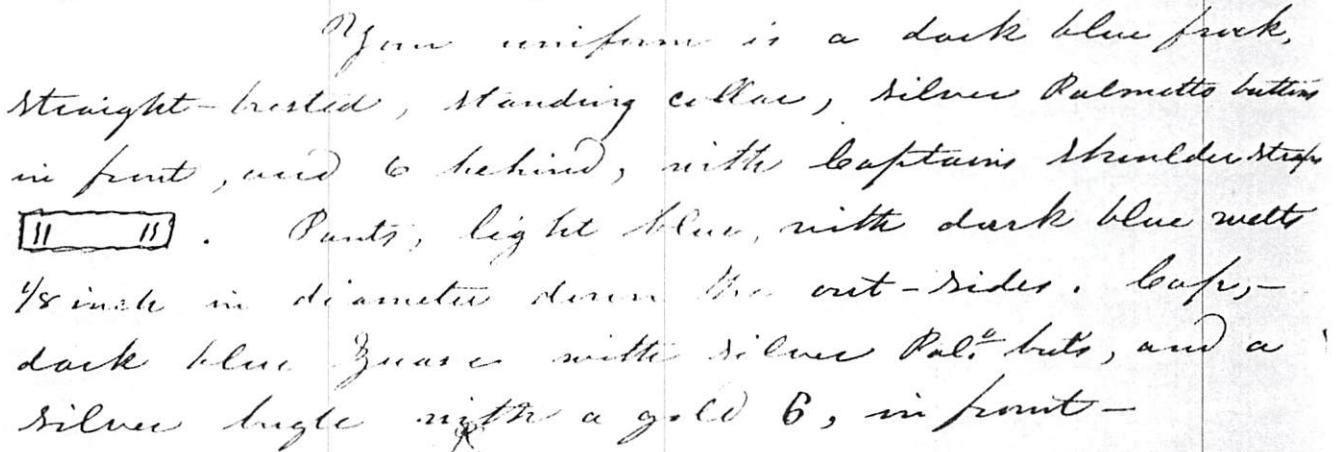 Your uniform is a dark blue frock,
straight-brested, standing collar, silver Palmetto buttons
in front, and 6 behind, with Captains shoulder straps
. Pants, light blue, with dark blue welts
1/8 inch in diameter down the out-sides. Cap,-
dark blue Zuave with silver Pal. buts, and a
silver bugle with a gold 6, in front-